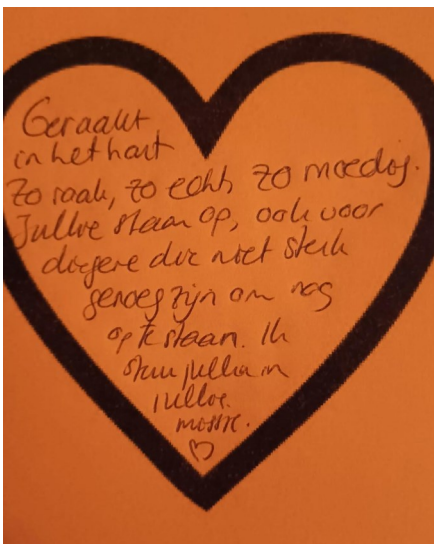 Geraakt
in het hart
Zo raak, zo echt, zo moedig.
Jullie staan op, ook voor
diegene die niet sterk
genoeg zijn om nog
op te staan. Ik
steun jullie in
jullie
missie.